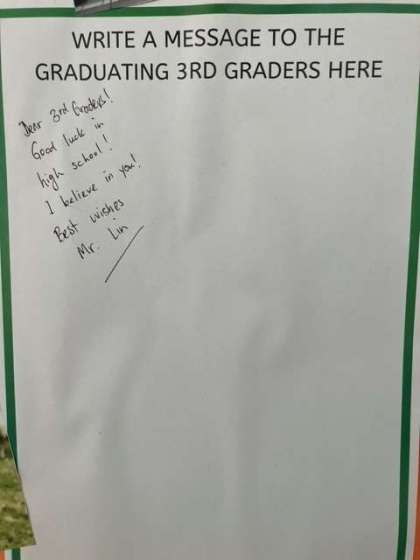 WRITE A MESSAGE TO THE
GRADUATING 3RD GRADERS HERE
Dear 3rd Graders!
Good luck in
high school!
I believe in you!
Best wishes
Mr. Lin